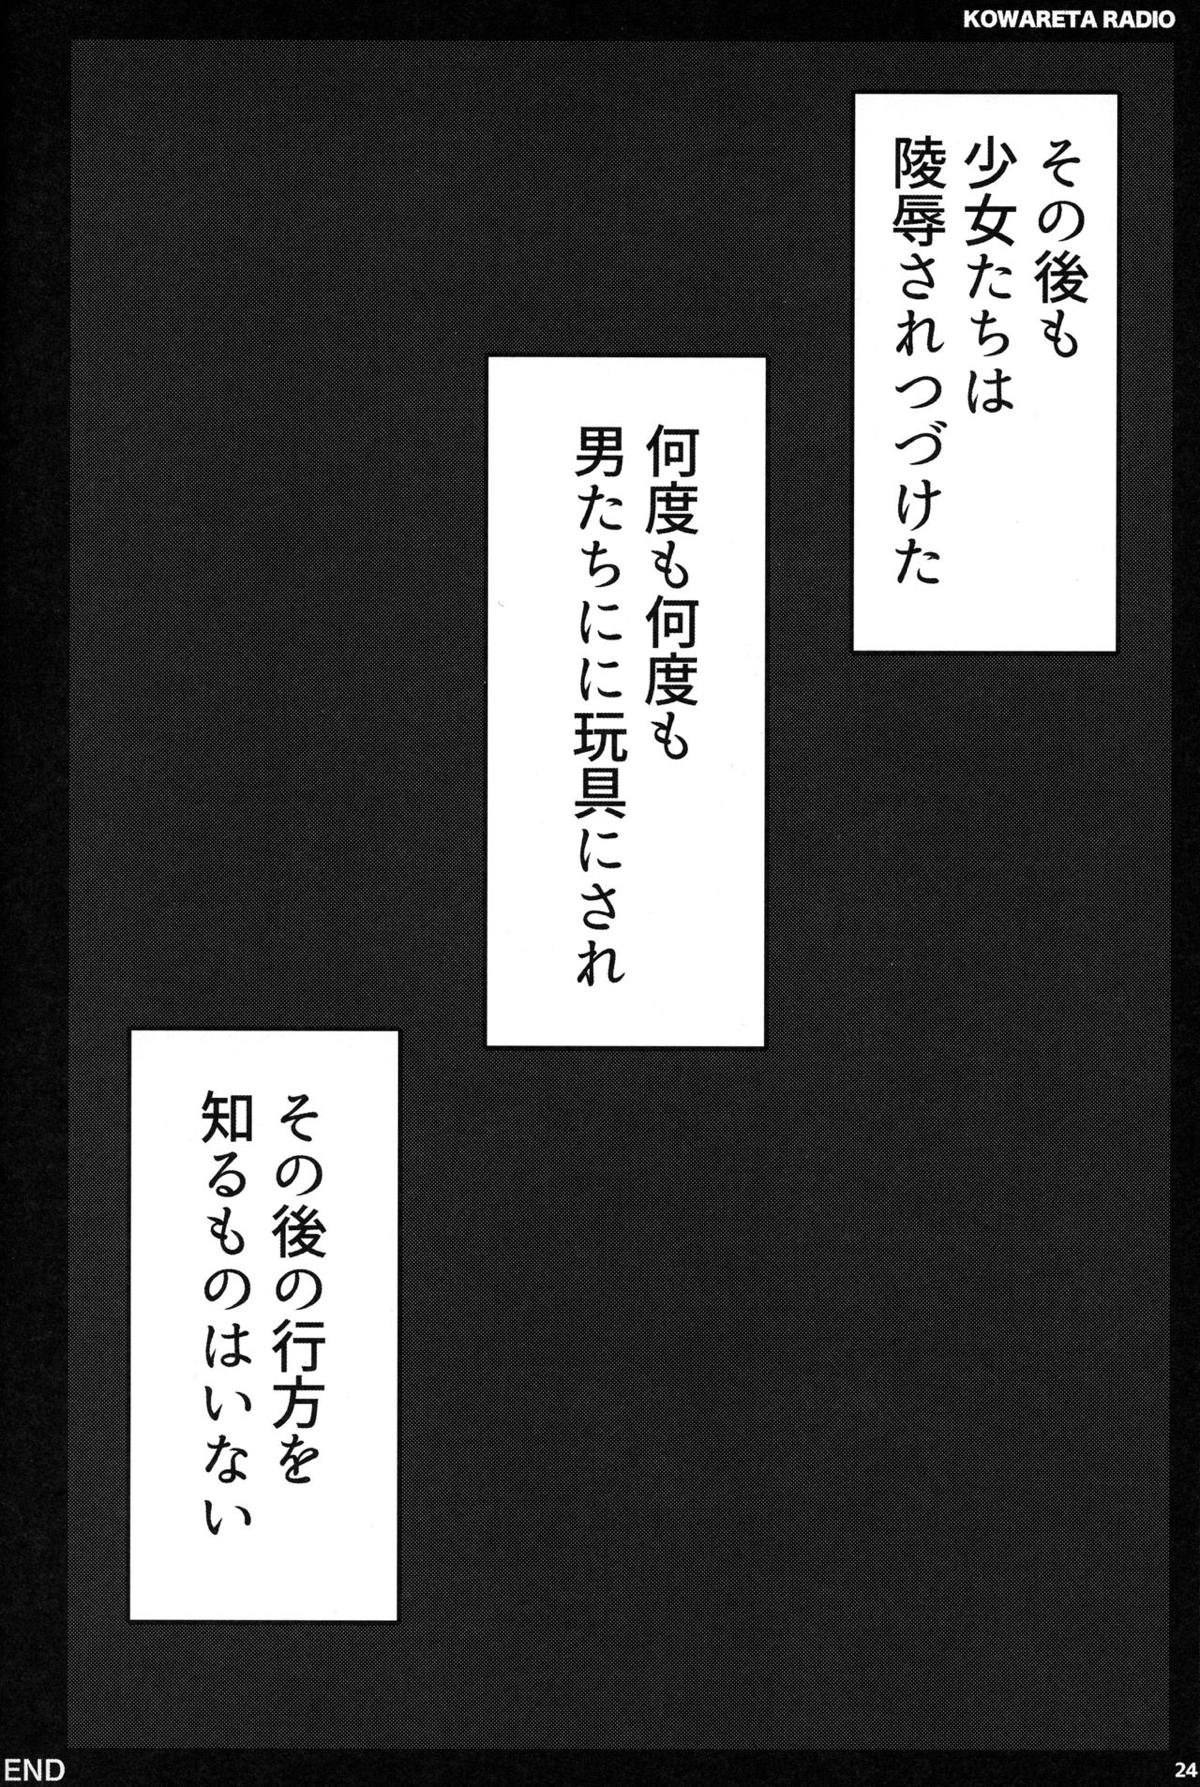 KOWARETA RADIO
その後も
少女たちは
陵辱されつづけた
何度も何度も
男たちにに玩具にされ
その後の行方を
知るものはいない
END
24